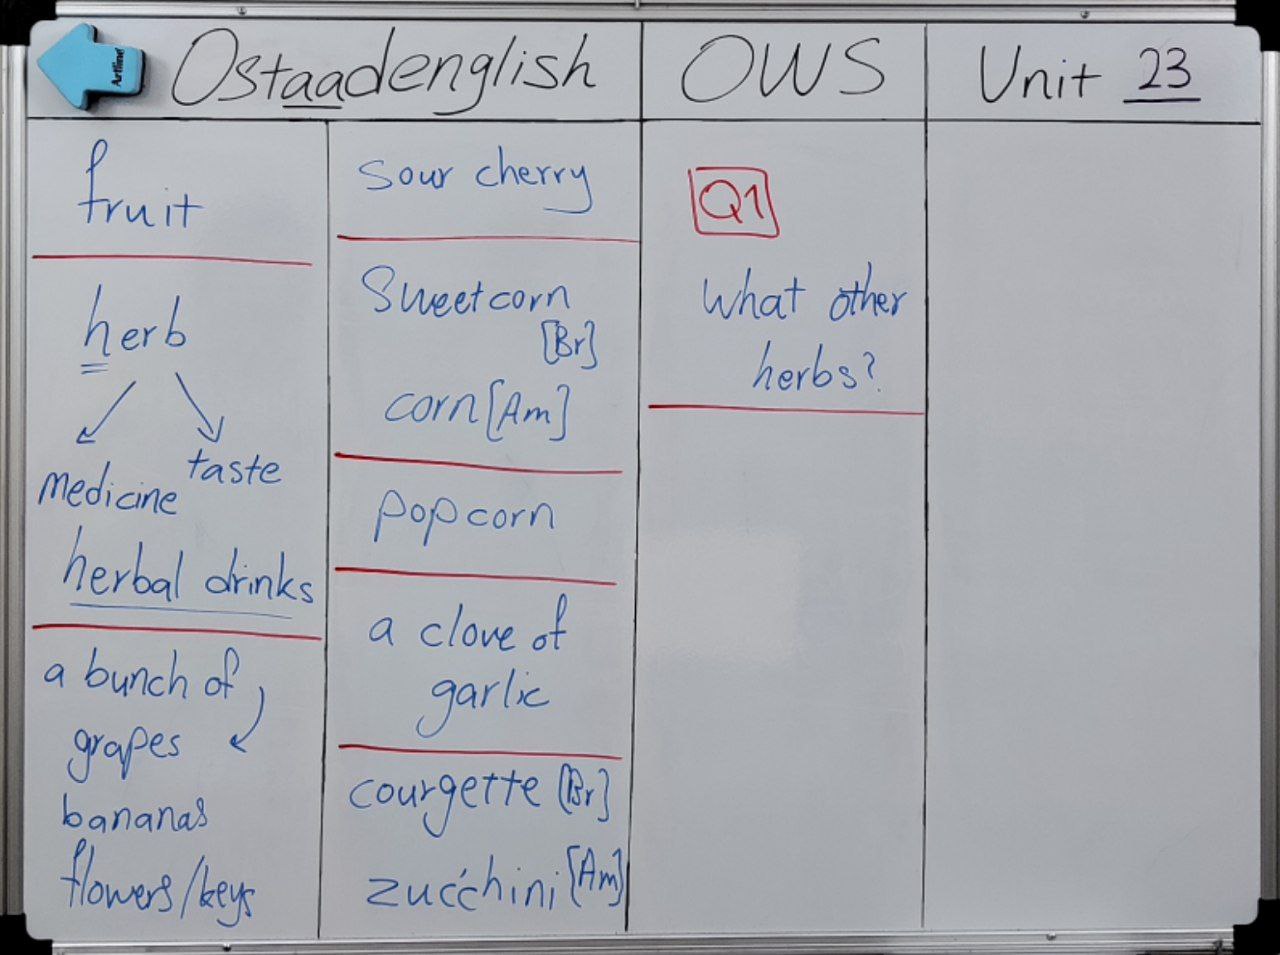 Artline
Ostaadenglish
OWS
Unit 23
fruit
herb
medicine
taste
herbal drinks
a bunch of
grapes
bananas
flowers/keys
Sour cherry
Sweetcorn
[Br]
corn [Am]
popcorn
a clove of
garlic
courgette [Br]
zucchini [Am]
Q1
What other
herbs?